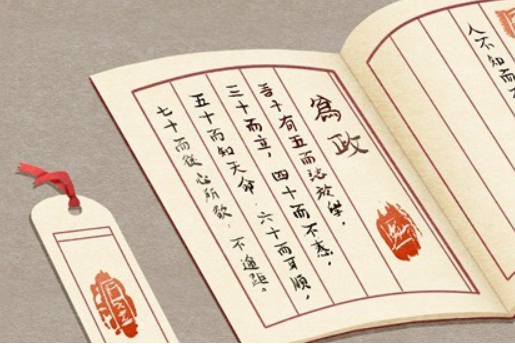 人不知而不
為政
吾十有五而志於學，
三十而立，四十而不惑，
五十而知天命，六十而耳順，
七十而從心所欲，不逾距。